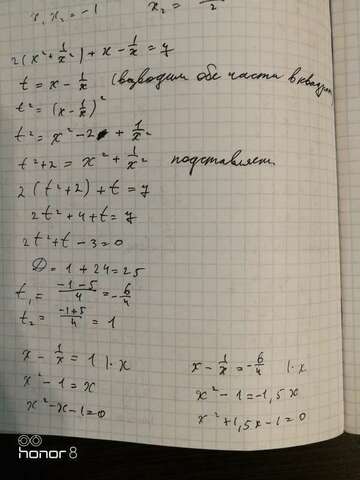 x₁x₂ = -1 x₂ = 2
2(x² + 1/x²) + x - 1/x = y
t = x - 1/x (возводим обе части в квадрат
t² = (x - 1/x)²
t² = x² - 2 + 1/x²
t² + 2 = x² + 1/x² подставляем
2(t² + 2) + t = y
2t² + 4 + t = y
2t² + t - 3 = 0
D = 1 + 24 = 25
t₁ = (-1-5)/4 = -6/4
t₂ = (-1+5)/4 = 1
x - 1/x = 1 |·x x - 1/x = -6/4 |·x
x² - 1 = x x² - 1 = -1,5x
x² - x - 1 = 0 x² + 1,5x - 1 = 0
honor 8